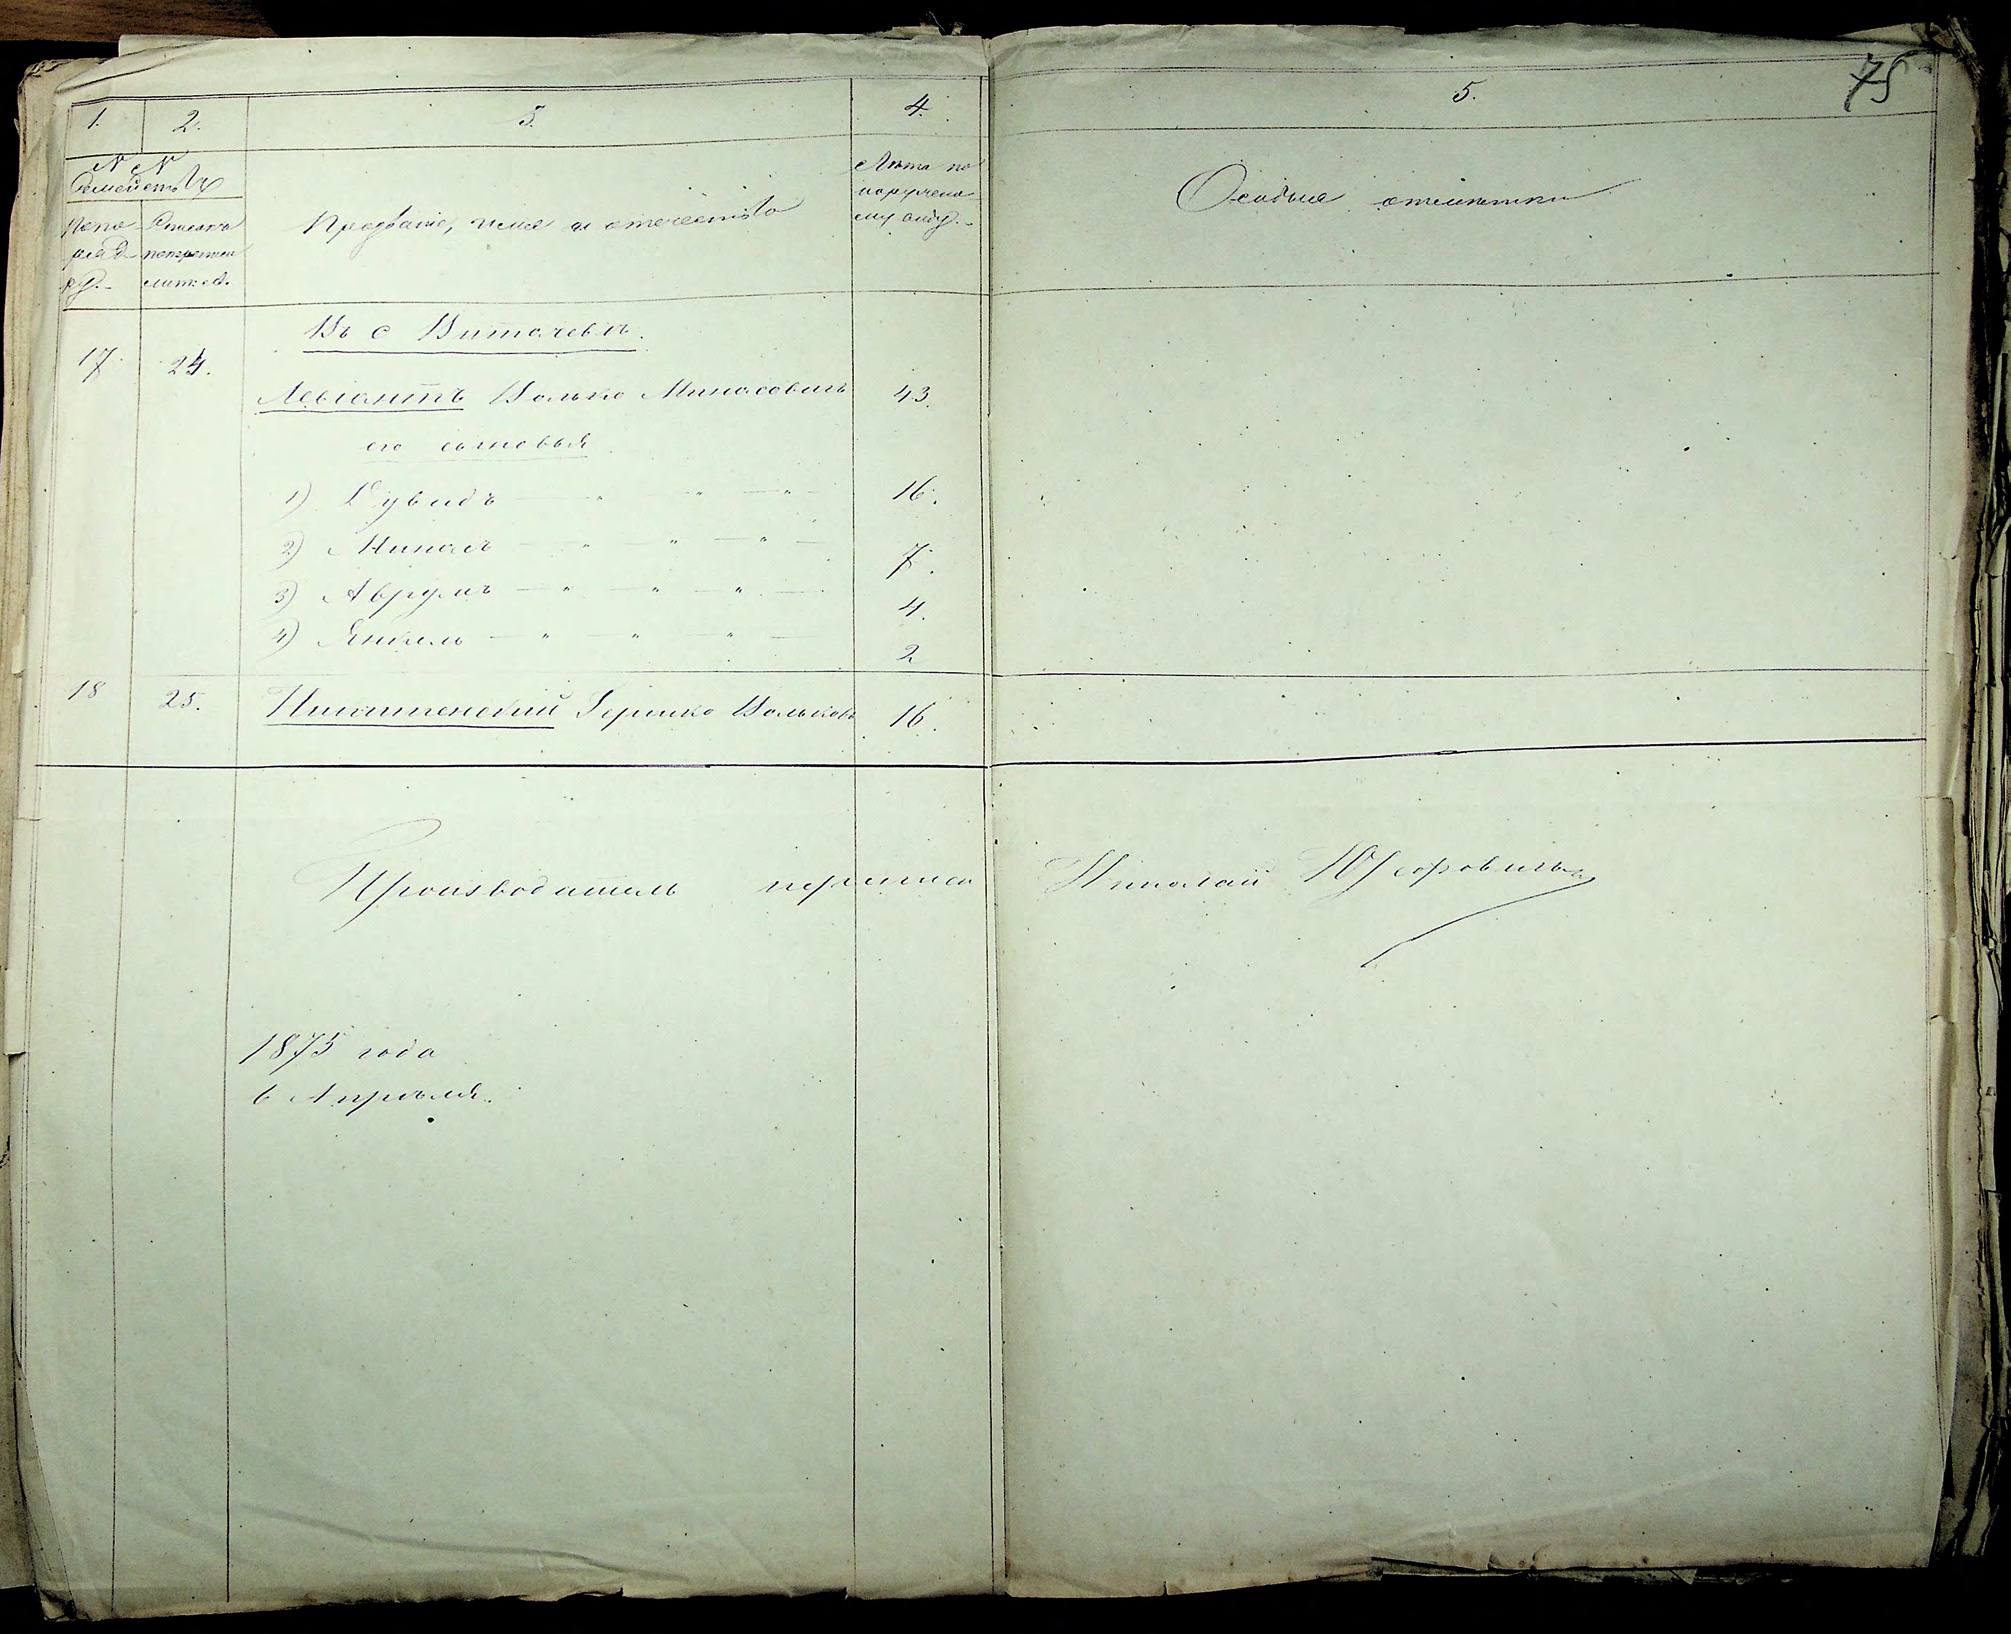 75
1. 2. 3. 4. 5.
№ №
Семействъ
Попо
ряд
ку.
Прозваніе, имя и отчество
Лѣта по
наружно
му виду.
Особыя отмѣтки
Въ с Витачевѣ.
17. 24. Левіантъ Волько Минасовичъ 43.
его сыновья
1) Дувидъ — " — " — " — 16.
2) — " — " — " — 7.
3) Аврумъ — " — " — " — 4.
4) Янкель — " — " — " — 2
18 25. Гершко Вольковъ 16.
Производитель переписи Николай
1875 года
6 Апрѣля.